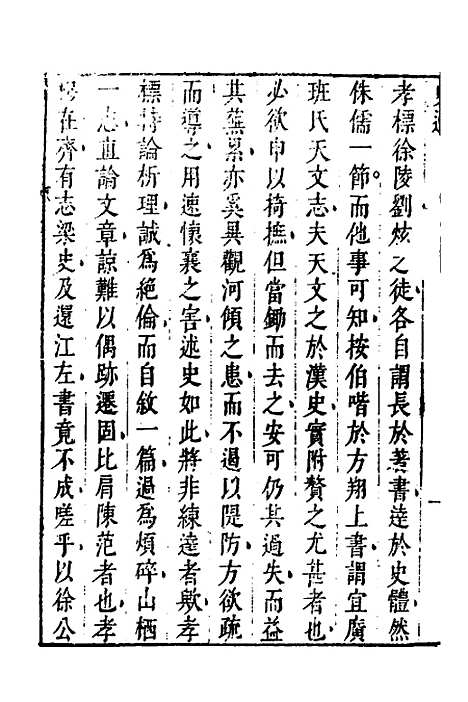 孝標徐陵劉炫之徒各自謂長於著書達於史體然
侏儒一節而他事可知按伯喈於方翔上書謂宜廣
班氏天文志夫天文之於漢史實附贅之尤甚者也
必欲申以掎摭但當鋤而去之安可仍其過失而益
其蕪累亦奚異觀河傾之患而不遏以隄防方欲疏
而導之用速懷襄之害述史如此將非練達者歟孝
標持論析理誠為絕倫而自敘一篇過為煩碎山栖
一志直論文章諒難以偶跡遷固比肩陳范者也孝
穆在齊有志梁史及還江左書竟不成嗟乎以徐公